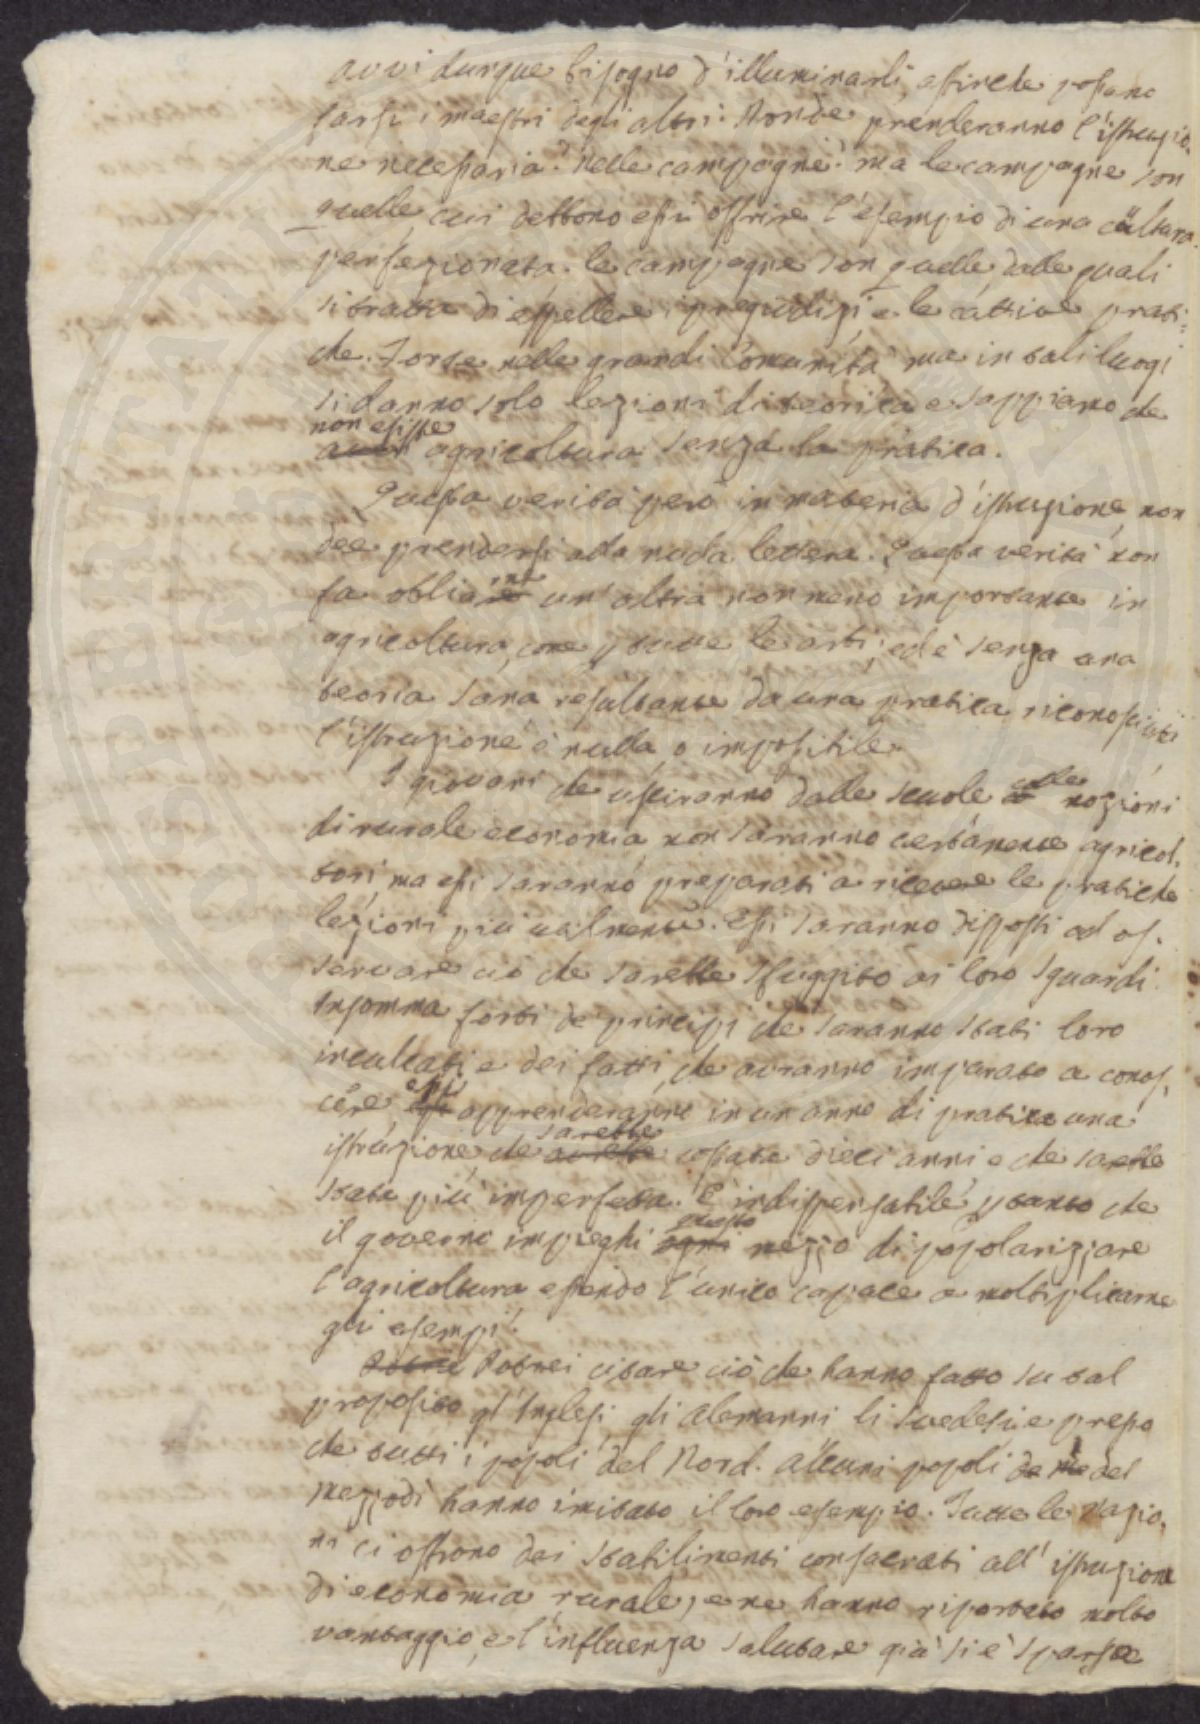 avvi dunque bisogno d'illuminarli, affinche possano
farsi i maestri degli altri. Donde prenderanno l'istruzio-
ne necessaria? nelle campagne? ma le campagne son
quelle, cui debbono essi offrire l'esempio di una cultura
perfezionata. le campagne son quelle, dalle quali
si tratta di espellere i pregiudizj e le cattive prati-
che. Forse nelle grandi Comunità ma in tali luogi
si danno solo lezioni di teorica e sappiamo che
non esiste
avvi agricoltura senza la pratica.
Questa verità però in materia d'istruzione, non
dee prendersi alla nuda lettera. Questa verità non
fa obliare un'altra non meno importante in
agricoltura, come p tutte le arti; ed è senza una
teoria sana resultante da una pratica riconosciuti
l'istruzione è nulla, o impossibile.
I giovani che usciranno dalle scuole colle nozioni
di rurale economia non saranno certamente agricol-
tori, ma essi saranno preparati a ricevere le pratiche
lezioni più utilmente. essi saranno disposti ad os-
servare ciò che sarebbe sfuggito ai loro sguardi.
Insomma forti de principj che saranno stati loro
inculcati e dei fatti, che avranno imparato a conos-
cere, essi apprenderanno in un anno di pratica una
sarebbe
istruzione, che avrebbe costata dieci anni e che sarebbe
stata più imperfetta. È indispensabile p tanto che
questo
il governo impieghi ogni mezzo di popolarizzare
l'agricoltura, essendo l'unico capace a moltiplicarne
gli esempi.
Potrei Potrei citare ciò che hanno fatto su tal
proposito gl'Inglesi, gli Alemanni li Svedesi, e presso
che tutti i popoli del Nord. Alcuni popoli de me del
Mezzodì hanno imitato il loro esempio. Tutte le Nazio-
ni ci offrono dei stabilimenti consacrati all'istruzione
di economia rurale, e ne hanno riportato molto
vantaggio, e l'influenza salutare già si è sparsa